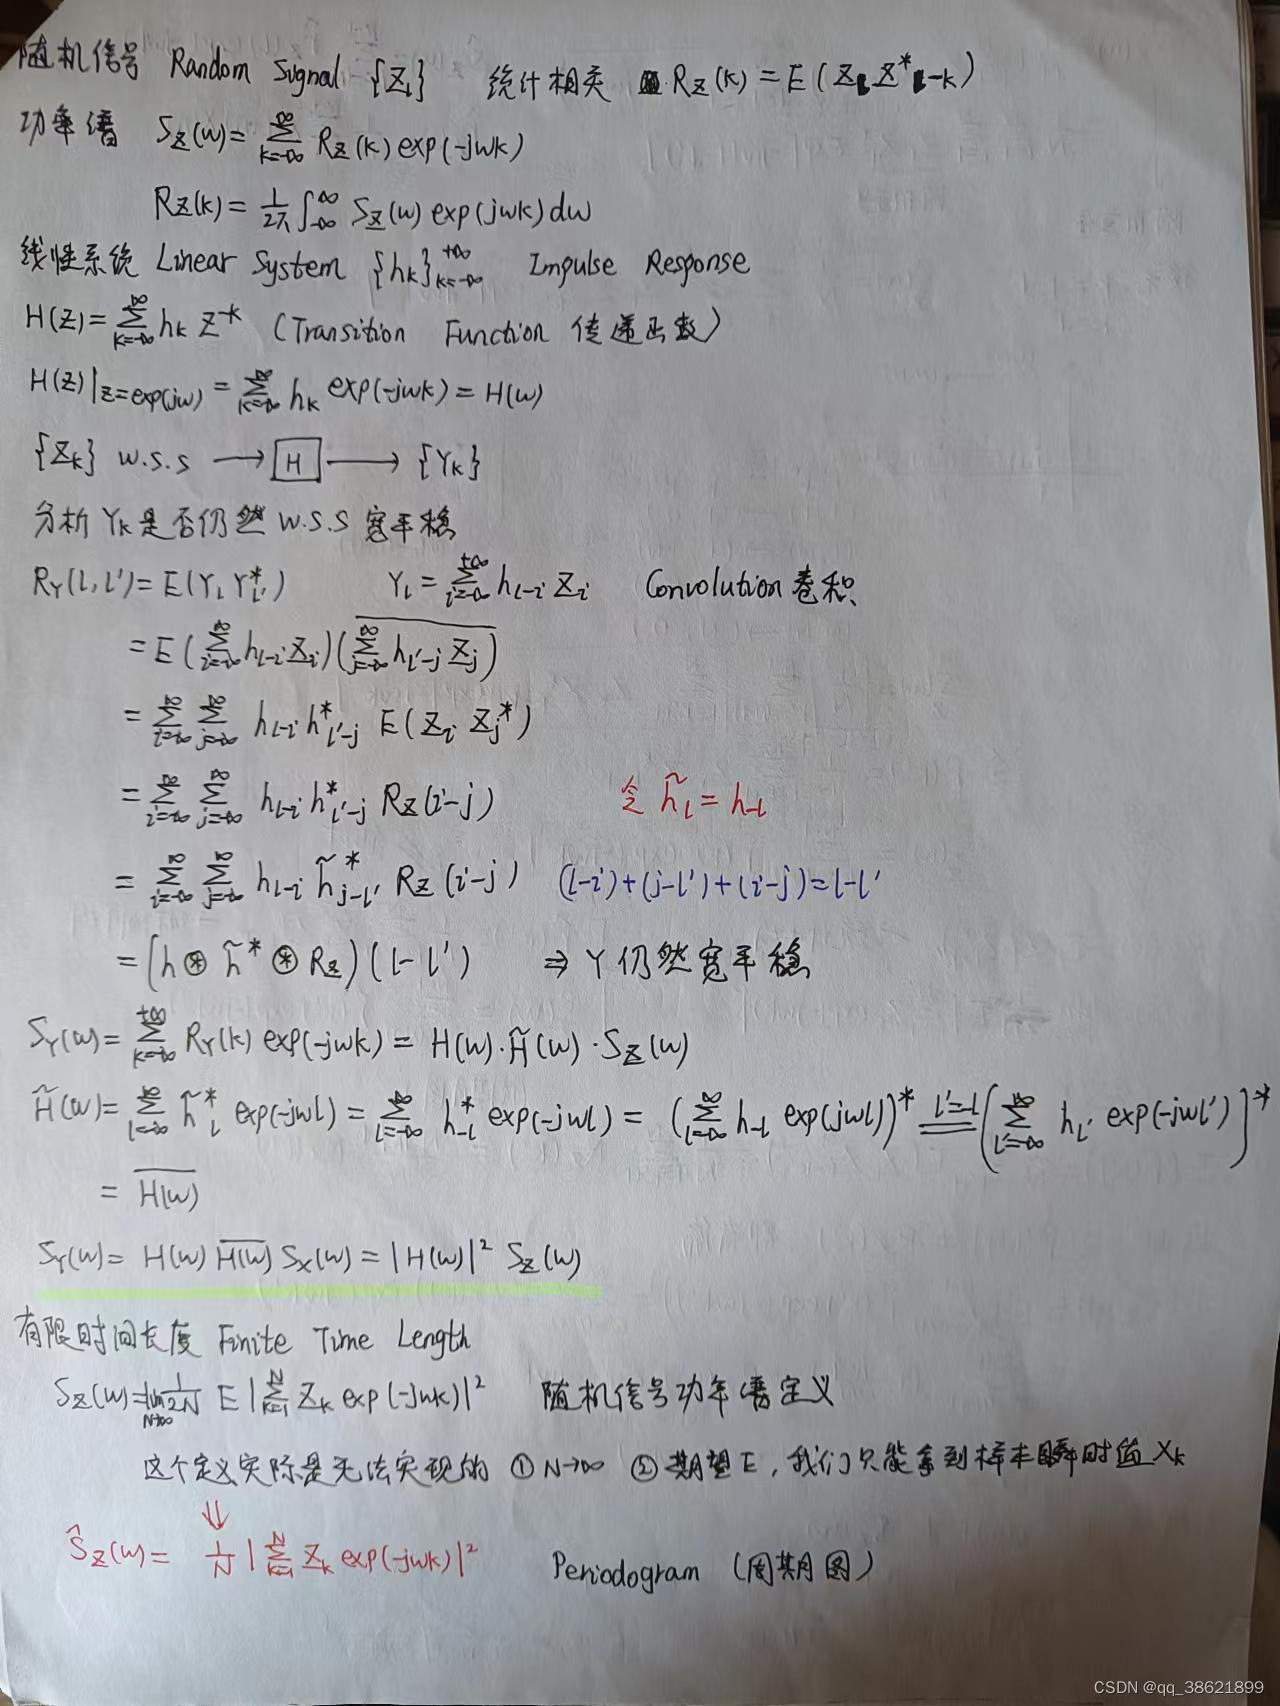 随机信号 Random Signal {Z_l} 统计相关 R_Z(k) = E(Z_l Z*_{l-k})
功率谱 S_Z(w) = ∑_{k=-∞}^{∞} R_Z(k) exp(-jwk)
R_Z(k) = 1/2π ∫_{-∞}^{∞} S_Z(w) exp(jwk) dw
线性系统 Linear System {h_k}_{k=-∞}^{+∞} Impulse Response
H(Z) = ∑_{k=-∞}^{∞} h_k Z^{-k} (Transition Function 传递函数)
H(Z)|_{Z=exp(jw)} = ∑_{k=-∞}^{∞} h_k exp(-jwk) = H(w)
{Z_k} W.S.S ⟶ [H] ⟶ {Y_k}
分析 Y_k 是否仍然 W.S.S 宽平稳
R_Y(l, l') = E(Y_l Y*_{l'}) Y_l = ∑_{i=-∞}^{+∞} h_{l-i} Z_i Convolution 卷积
= E(∑_{i=-∞}^{∞} h_{l-i} Z_i) \overline{(∑_{j=-∞}^{∞} h_{l'-j} Z_j)}
= ∑_{i=-∞}^{∞} ∑_{j=-∞}^{∞} h_{l-i} h*_{l'-j} E(Z_i Z_j*)
= ∑_{i=-∞}^{∞} ∑_{j=-∞}^{∞} h_{l-i} h*_{l'-j} R_Z(i-j) 令 h̃_l = h_{-l}
= ∑_{i=-∞}^{∞} ∑_{j=-∞}^{∞} h_{l-i} h̃*_{j-l'} R_Z(i-j) (l-i)+(j-l')+(i-j)=l-l'
= (h ⊛ h̃* ⊛ R_Z)(l-l') ⇒ Y 仍然宽平稳
S_Y(w) = ∑_{k=-∞}^{+∞} R_Y(k) exp(-jwk) = H(w)·H̃(w)·S_Z(w)
H̃(w) = ∑_{l=-∞}^{∞} h̃*_l exp(-jwl) = ∑_{l=-∞}^{∞} h*_{-l} exp(-jwl) = (∑_{l=-∞}^{∞} h_{-l} exp(jwl))* \overset{l'=-l}{=} (∑_{l'=-∞}^{∞} h_{l'} exp(-jwl'))*
= \overline{H(w)}
S_Y(w) = H(w) \overline{H(w)} S_X(w) = |H(w)|² S_Z(w)
有限时间长度 Finite Time Length
S_Z(w) = lim_{N→∞} 1/2N E|∑_{k=1}^{N} Z_k exp(-jwk)|² 随机信号功率谱定义
这个定义实际是无法实现的 ① N→∞ ② 期望E, 我们只能拿到样本瞬时值 X_k
⇓
Ŝ_Z(w) = 1/N |∑_{k=1}^{N} Z_k exp(-jwk)|² Periodogram (周期图)
CSDN @qq_38621899